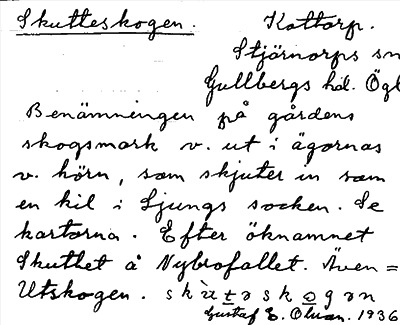 Skutteskogen. Kottorp.
Stjärnorps sn
Gullbergs hd. Ögl
Benämningen på gårdens
skogsmark v. ut i ägornas
v. hörn, som skjuter in som
en kil i Ljungs socken. Se
kartorna. Efter öknamnet
Skuttet å Nybrofallet. Även =
Utskogen. skùtəskogən
Gustaf E. Olsson. 1936